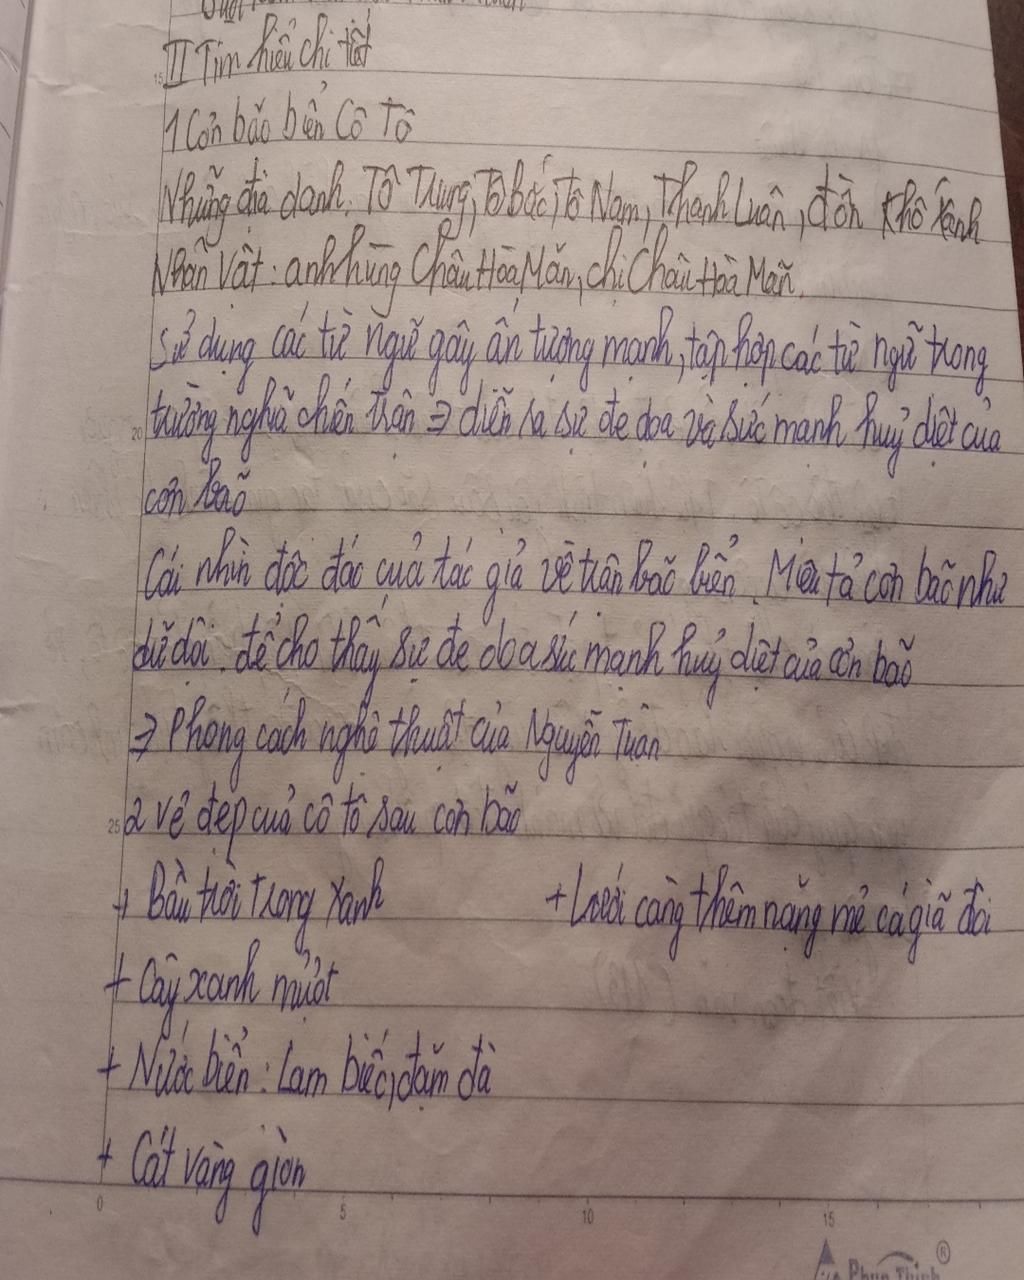 II Tìm hiểu chi tiết
1 Cơn bão biển Cô Tô
Những địa danh. Tô Trung, Tô bắc, Tô Nam, Thanh Luân, đồn khố xanh
Nhân vật: anh hùng Châu Hòa Mãn, chị Châu Hòa Mãn.
Sử dụng các từ ngữ gây ấn tượng mạnh, tập hợp các từ ngữ trong
trường nghĩa chiến trận => diễn ra sự đe doạ và sức mạnh huỷ diệt của
cơn bão
Cái nhìn độc đác của tác giả về trận bão biển. Miêu tả cơn bão như
dữ dội. để cho thấy sự đe doạ sức mạnh huỷ diệt của cơn bão
=> Phong cách nghệ thuật của Nguyễn Tuân
2 vẻ đẹp của cô tô sau cơn bão
+ Bầu trời trong xanh + Lưới càng thêm nặng mẻ cá giã đôi
+ Cây xanh mượt
+ Nước biển: Lam biếc, đặm đà
+ Cát vàng giòn
0 5 10 15
15
20
25